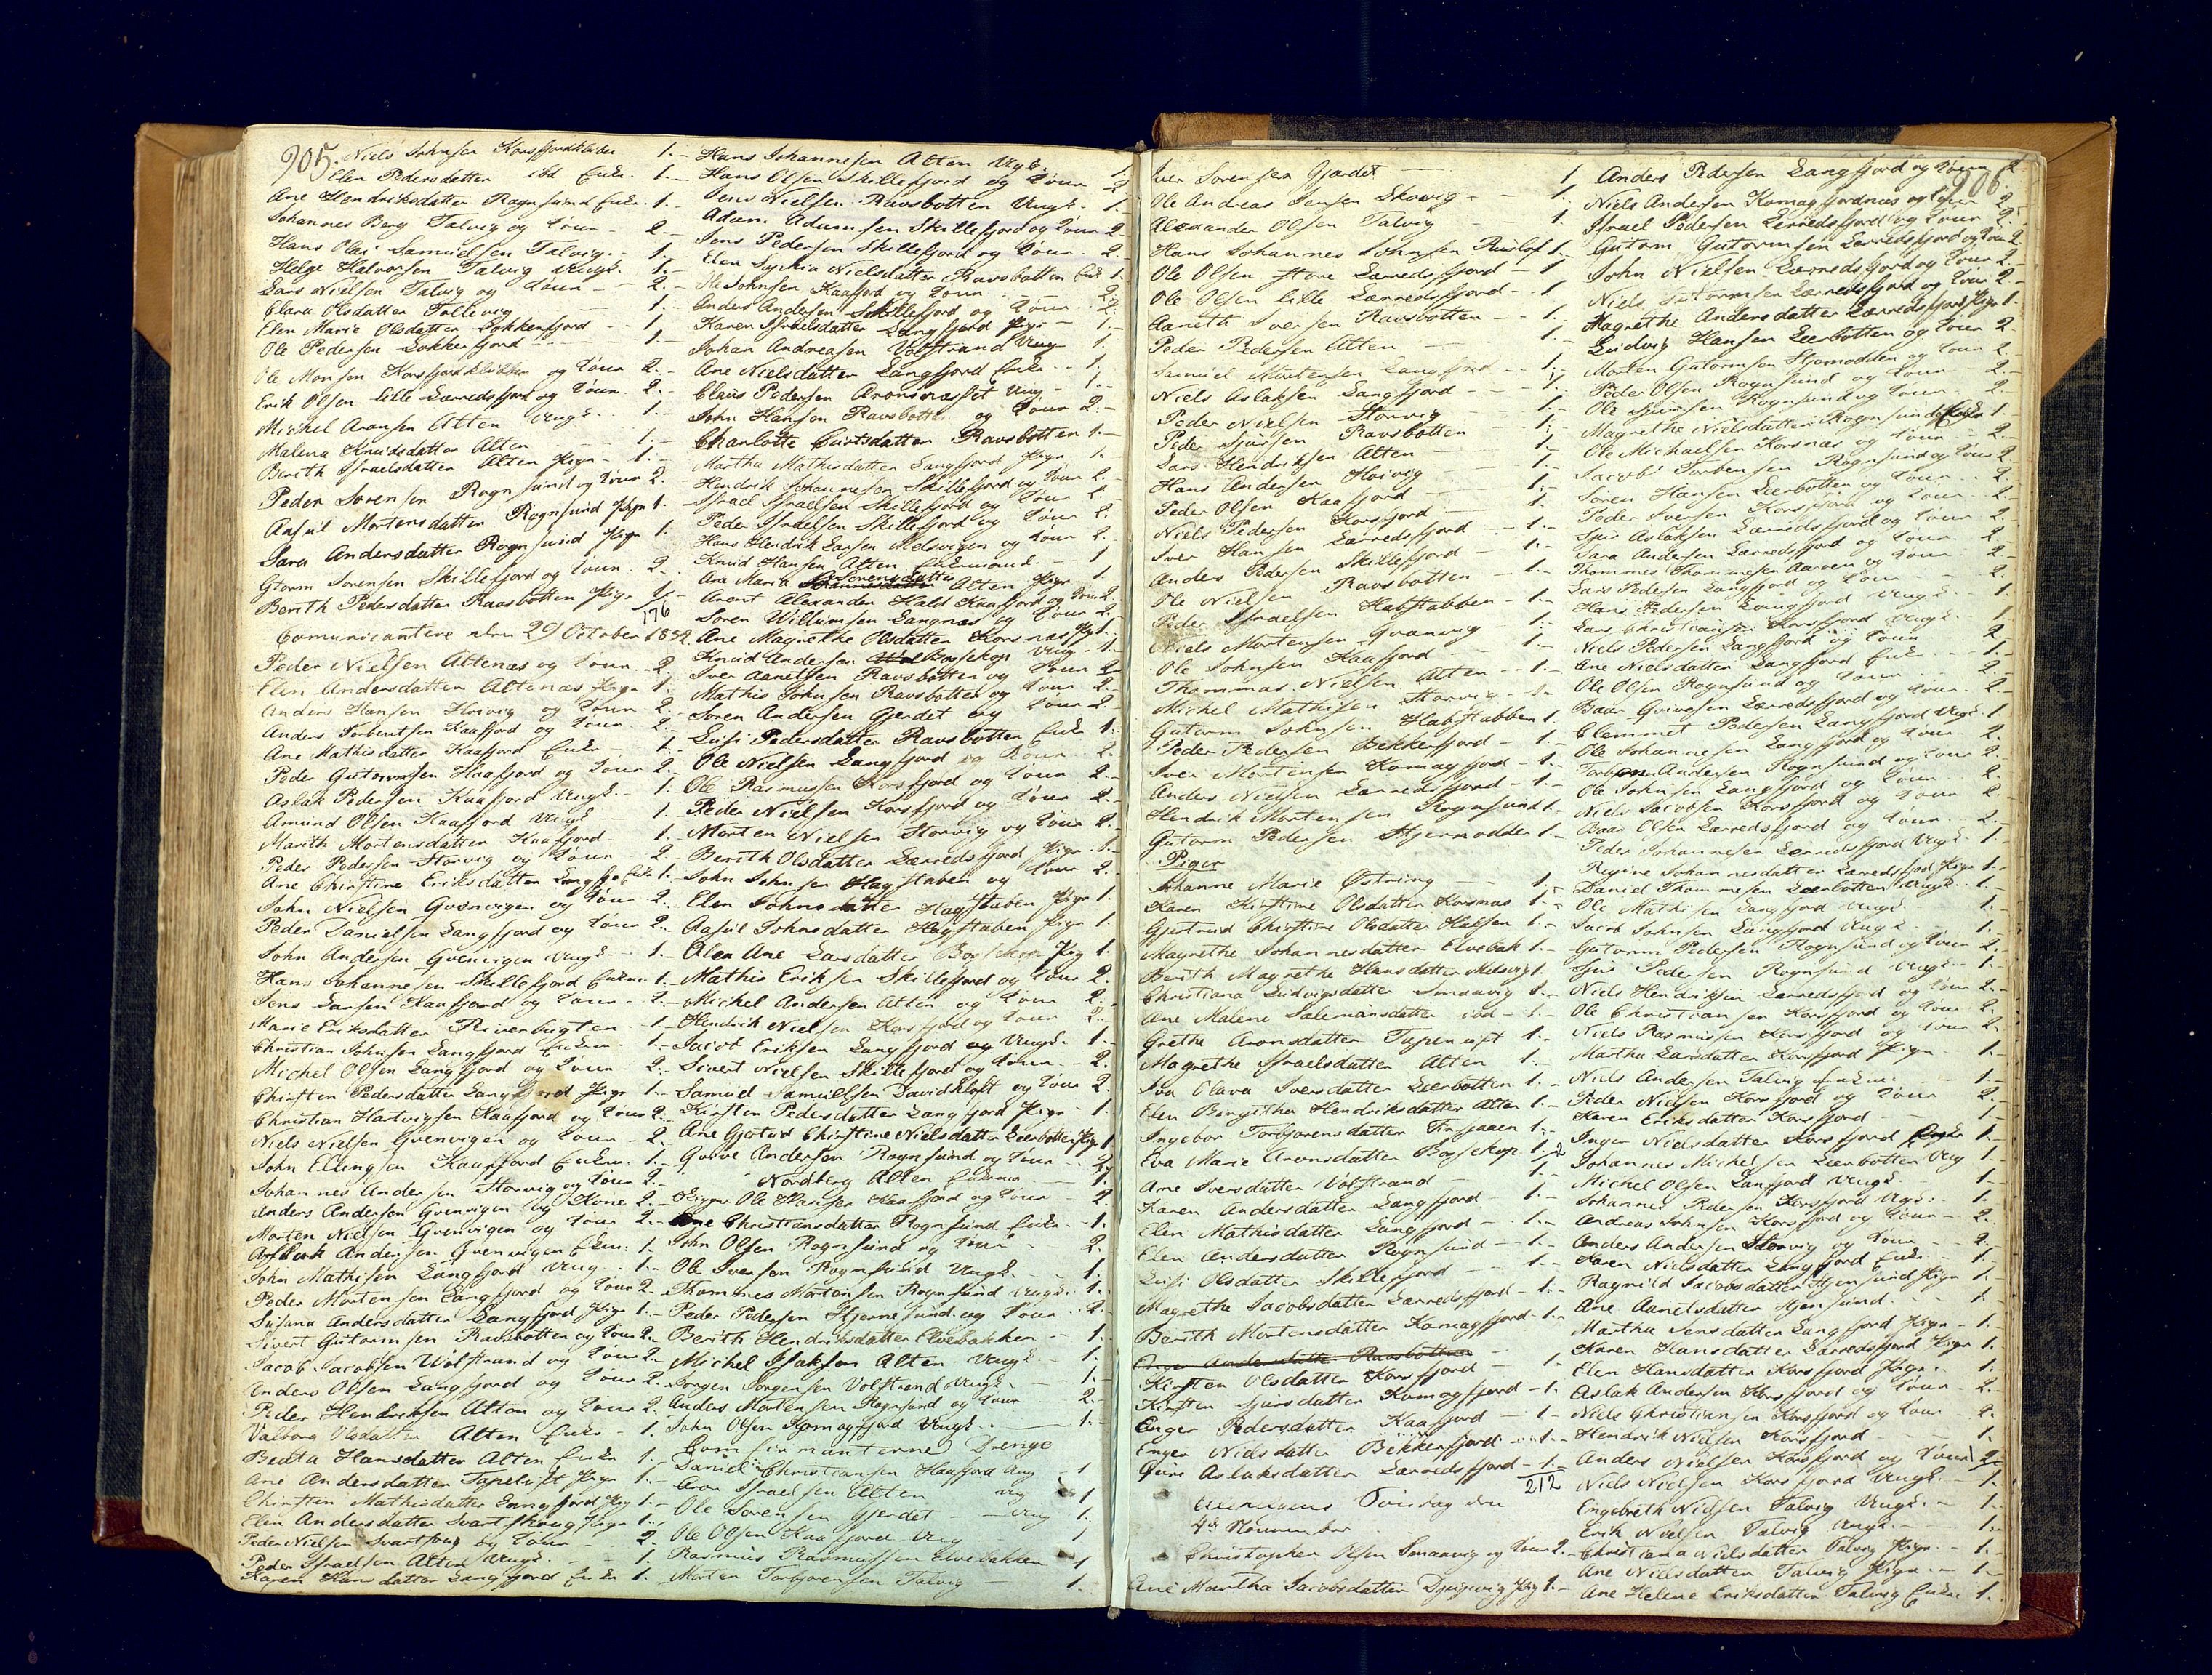 905.
Niels Johnsen Korsfjordklubben 1.-
Elen Pedersdatter ibd Enke. 1.-
Ane Hendriksdatter Rognsund Enke. 1.-
Johannes Berg Talvig og Kone 2.-
Hans Olai Samuelsen Talvig. 1.
Helge Halvorsen Talvig Ungk. 1.-
Lars Nielsen Talvig og Kone 2.-
Clara Olsdatter Tollevig 1.
Elen Marie Olsdatter Lokkerfjord 1.
Ole Pedersen Lokkerfjord 1.-
Ole Monsen Korsfjordklubben og Kone 2.-
Erik Olsen Lille Lærredsfjord og Kone 2.-
Michel Aronsen Alten Ungk. 1.-
Malena Knudsdatter Alten 1.-
Berith Israelsdatter Alten Pige 1.-
Peder Sorensen Rognsund og Kone 2.
Mortensdatter Rognsund Pige 1.
Sara Andersdatter Rognsund Pige 1.
Gtorm Sorensen Skillefjord og Kone 2.
Berith Pedersdatter Ravsbotten Pige 1.-
176
Comunicantere den 29 October 1832.
Peder Nielsen Altenæs og Kone 2.
Elen Andersdatter Altenæs Pige 1.
Anders Hansen Hoivig og Kone 2.
Anders Torbentsen Kaafjord og Kone 2.
Ane Mathisdatter Kaafjord Enke 1.
Peder Gutormsen Kaafjord og Kone 2.
Aslak Pedersen Kaafjord Ungk. 1.
Amund Olsen Kaafjord Ungk 1.
Marith Mortensdatter Kaafjord 1.
Peder Pedersen Storvig og Kone 2.
Ane Christine Eriksdatter Langfjo Enke 1.
John Nielsen Qvenvigen og Kone 2.
Peder Danielsen Langfjord og Kone 2.
John Andersen Qvenvigen Ungk 1.
Hans Johannesen Skillefjord Enkem. 1.
Jens Larsen Kaafjord og Kone 2.
Marie Eriksdatter Riverbugten 1.
Christian Johnsen Langfjord Enkem. 1.
Michel Olsen Langfjord og Kone 2.
Chirsten Pedersdatter Langfjord Pige 1.
Christian Hartvigsen Kaafjord og Kone 2.
Niels Nielsen Qvenvigen og Kone 2.
John Ellingsen Kaafjord Enkm. 1.
Johannes Andersen Storvig og Kone 2.
Anders Andersen Qvenvigen og Kone 2.
Morten Nielsen Qvenvigen og Kone 2.
Andersen Qvenvigen Enkm. 1.
John Mathisen Langfjord Ung 1.
Peder Mortensen Langfjord og Kone 2
Susana Andersdatter Langfjord Pige 1.
Sivert Gutormsen Ravsbotten og Kone 2.
Jacob Jacobsen Wolstrand og Kone 2.
Anders Olsen Langfjord og Kone 2.
Peder Hendriksen Alten og Kone 2.
Valborg Olsdatter Alten Enke 1.
Beata Hansdatter Alten Enke 1.
Ane Andersdatter Tapeluft Pige 1.
Chirsten Mathisdatter Langfjord Pig 1.
Elen Andersdatter Svartskoug Pige 1.
Peder Nielsen Svartskoug og Kone 2.
Peder Israelsen Alten Ungk. 1.
Karen Hansdatter Langfjord Enke 1.
Hans Johannesen Alten Ungk. 1.
Hans Olsen Skillefjord og Kone 2
Jens Nielsen Ravsbotten Ungk. 1.
Adam Adamsen Skillefjord og Kone 2
Jens Pedersen Skillefjord og Kone 2.
Elen Nielsdatter Ravsbotten Enk 1.
Ole Johnsen Kaafjord og Kone 2
Anders Andersen Skillefjord og Kone 2.
Karen Israelsdatter Langfjord Pige 1.
Johan Andreasen Volstrand Ung 1.
Ane Nielsdatter Langfjord Enke 1.
Claus Pedersen Aronsnæsset Ung 1.
John Hansen Ravsbotten og Kone 2.
Charlotte Curtsdatter Ravsbotten 1.
Martha Mathisdatter Langfjord Pige 1.
Hendrik Johannesen Skillefjord og Kone 2.
Israel Israelsen Skillefjord og Kone 2.
Peder Israelsen Skillefjord og Kone 2.
Hans Hendrik Larsen Melsvigen og Kone 2.
Knud Hansen Alten Enkemand 1
Ane Maria Sorensdatter Alten Pige 1
Arent Alexander Hald Kaafjord og Kone 2.
Soren Willumsen Langnæs og Kone 2.
Ane Magrethe Olsdatter Korsnæs Pig 1.
Knud Andersen Bossekop Ung 1.
Iver Aanetsen Ravsbotten og Kone 2
Mathis Johnsen Ravsbotten og Kone 2.
Soren Andersen Gjerdet og Kone 2.
Luisi Pedersdatter Ravsbotten Enke 1.
Ole Nielsen Langfjord og Kone 2
Ole Rasmussen Korsfjord og Kone 2.
Peder Nielsen Korsfjord og Kone 2.
Morten Nielsen Storvig og Kone 2.
Berith Olsdatter Lærredsfjord Pige 1.
John Johnsen Hagstaben og Kone 2.
Elen Johnsdatter Hagstaben Pige 1.
Johnsdatter Hagstaben Pige 1
Alen Ane Larsdatter Bossekop Pig 1.
Mathis Eriksen Skillefjord og Kone 2.
Michel Andersen Alten og Kone 2
Hendrik Nielsen Korsfjord og Kone 2.
Jacob Eriksen Langfjord Ungk. 1
Sivert Nielsen Skillefjord og Kone 2.
Samuel Samuelsen Davidkloft og Kone 2.
Kirsten Pedersdatter Langfjord Pige 1.
Ane Gjertrud Chirstine Nielsdatter Leerbotten Pige 1
Andersen Rognsund og Kone 2.
Nordberg Alten Enkema 1
Ole Hansen Kaafjord og Kone 2
Ane Christiansdatter Rognsund Enke 1.
John Olsen Rognsund og Kone 2.
Ole Iversen Rognsund Ungk. 1.
Thommes Mortensen Rognsund Ungk. 1.
Peder Pedersen Stjernesund og Kone 2.
Berith Hendriksdatter Elvebakken 1.
Michel Isaksen Alten Ungk. 1.
Jorgen Jorgensen Volstrand Ungk. 1.
Anders Mortensen Rognsund og Kone 2.
John Olsen Komagfjord Ungk. 1.
Comfirmanterne Drenge
Daniel Christiansen Kaafjord Ung 1
Aron Israelsen Alten Ung 1
Ole Sorensen Gjerdet Ung 1.
Ole Olsen Kaafjord Ung 1
Rasmus Rasmussen Elvebakken 1
Morten Torbjorensen Talvig 1.
906.
Iver Sorensen Gjærdet 1
Ole Andreas Jensen Skovig 1.
Alexander Olsen Talvig 1.
Hans Johannes Johnsen 1.
Ole Olsen Store Lærredsfjord 1
Ole Olsen Lille Lærredsfjord 1
Aaneth Iversen Ravsbotten 1.
Peder Pedersen Alten 1.
Samuel Mortensen Langfjord 1.
Niels Aslaksen Langfjord 1.
Peder Nielsen Storvig 1.
Peder Sjursen Ravsbotten 1.
Lars Hendriksen Alten 1.
Hans Andersen Hoivig 1.
Peder Olsen Kaafjord 1.
Niels Pedersen Korsfjord 1.
Iver Hansen Lærredsfjord 1.
Anders Pedersen Skillefjord 1.
Ole Nielsen Ravsbotten 1.
Peder Israelsen Habstabben 1.
Niels Mortensen Qvanvig 1.
Ole Johnsen Kaafjord 1.
Thommas Nielsen Alten 1.
Michel Mathisen Storvig 1.
Gutorm Johnsen Habstabben 1.
Peder Pedersen Bekkerfjord 1.
Iver Mortensen Komagfjord 1.
Anders Nielsen Lærredsfjord 1.
Hendrik Mortensen Rognsund 1.
Gutorm Pedersen Stjernodden 1.
Piger
Johanne Marie Østring 1.
Karen Kirstine Olsdatter Korsnæs 1.
Gjertrud Chirstine Olsdatter Halsen 1.
Magrethe Johannesdatter Elvebak 1.
Berith Magrethe Hansdatter Melsvig 1.
Christiana Ludvigsdatter Smaavig 1.
Ane Malene Salemansdatter ibd 1.
Grethe Aronsdatter Tapeluft 1.
Magrethe Israelsdatter Alten 1.
Olava Iversdatter Leerbotten 1.
Elen Birgitha Hendriksdatter Alten 1.
Ingebor Torbjorensdatter 1.
Eva Marie Aronsdatter Bossekop 1.
Ane Iversdatter Volstrand 1
Karen Andersdatter Langfjord 1.
Elen Mathisdatter Langfjord 1.
Elen Andersdatter Rognsund 1.
Luisi Olsdatter Skillefjord 1.
Magrethe Jacobsdatter Lærredsfjord 1.
Berith Mortensdatter Komagfjord 1.
Inger Andersdatter Ravsbotten
Kirsten Olsdatter Korsfjord 1.
Kirsten Sjursdatter Komagfjord 1.
Enger Pedersdatter Kaafjord 1.
Enger Nielsdatter Bekkerfjord 1.
Aslaksdatter Lærredsfjord 1.
212
Søndag den
4de November
Christopher Olsen Smaavig og Kone 2.
Ane Martha Jacobsdatter Pig 1.
Anders Pedersen Langfjord og Kone 2
Niels Andersen Komagfjordnæs og Kone 2.
Israel Pedersen Lerredsfjord og Kone 2.
Gutorm Gutormsen Lærredsfjord og Kone 2
John Nielsen Lærredsfjord og Kone 2.
Niels Gutormsen Lærredsfjord og Kone 2.
Magrethe Andersdatter Lærredsfjord Pige 1.
Ludvig Hansen Leerbotten og Kone 2.
Morten Gutormsen Stjernodden og Kone 2.
Peder Olsen Rognsund og Kone 2.
Ole Sjursen Rognsund og Kone 2
Magrethe Nielsdatter Rognsund Enke 1.
Ole Michaelsen Korsnæs og Kone 2.
Jacob Torbensen Rognsund og Kone 2
Soren Hansen Leerbotten og Kone 2.
Peder Iversen Korsfjord og Kone 2.
Sjur Aslaksen Lærredsfjord og Kone 2.
Lara Andersen Lærredsfjord og Kone 2.
Thommes Thommesen Aaroen og Kone 2.
Lars Pedersen Langfjord og Kone 2.
Hans Pedersen Langfjord Ungk. 1
Lars Christiansen Korsfjord Ungk. 1
Niels Pedersen Langfjord og Kone 2
Ane Nielsdatter Langfjord Enke 1.
Ole Olsen Rognsund og Kone 2
Baar Lærredsfjord og Kone 2.
Clemmet Pedersen Langfjord Ungk. 1
Ole Johannesen Langfjord og Kone 2.
Andersen Rognsund og Kone 2.
Ole Johnsen Langfjord og Kone 2.
Niels Jacobsen Korsfjord og Kone 2.
Baar Olsen Lærredsfjord og Kone 2.
Peder Johannesen Lærredsfjord Ungk. 1.
Regine Johannesdatter Lærredsfjord Pige 1.
Daniel Thommesen Leerbotten Ungk. 1.
Ole Mathisen Langfjord Ungk. 1.
Jacob Johnsen Langfjord Ungk 1.
Gutorm Pedersen Rognsund og Kone 2.
Sjur Pedersen Rognsund Ungk. 1.
Niels Hendriksen Lærredsfjord og Kone 2.
Ole Christiansen Korsfjord og Kone 2.
Niels Rasmussen Korsfjord og Kone 2.
Martha Larsdatter Korsfjord Pige 1.
Niels Andersen Talvig Enkm. 1.
Peder Nielsen Korsfjord og Kone 2.
Karen Eriksdatter Korsfjord 1
Inger Nielsdatter Korsfjord 1.
Johannes Michelsen Leerbotten Ung 1
Michel Olsen Langfjord Ungk. 1
Johannes Pedersen Korsfjord Ugk. 1.
Andreas Johnsen Korsfjord og Kone 2.
Anders Andersen Storvig og Kone 2.
Karen Nielsdatter Langfjord Enke 1.
Ragnild Jacobsdatter Stjernsund Pige 1.
Ane Aanetsdatter Stjernsund. 1.
Martha Jensdatter Langfjord Pige 1.
Karen Hansdatter Lærredsfjord Pige 1.
Elen Hansdatter Korsfjord Pige. 1.
Aslak Andersen Korsfjord og Kone 2.
Niels Christiansen Korsfjord og Kone 2.
Hendrik Nielsen Korsfjord 1.
Anders Nielsen Korsfjord og Kone 2.
Niels Nielsen Korsfjord Ungk. 1.
Engebreth Nielsen Talvig Ungk. 1.
Erik Nielsen Talvig Ungk. 1.
Christiana Nielsdatter Talvig Pige. 1.
Ane Nielsdatter Talvig Pige. 1.
Ane Helene Eriksdatter Talvig Enke 1.